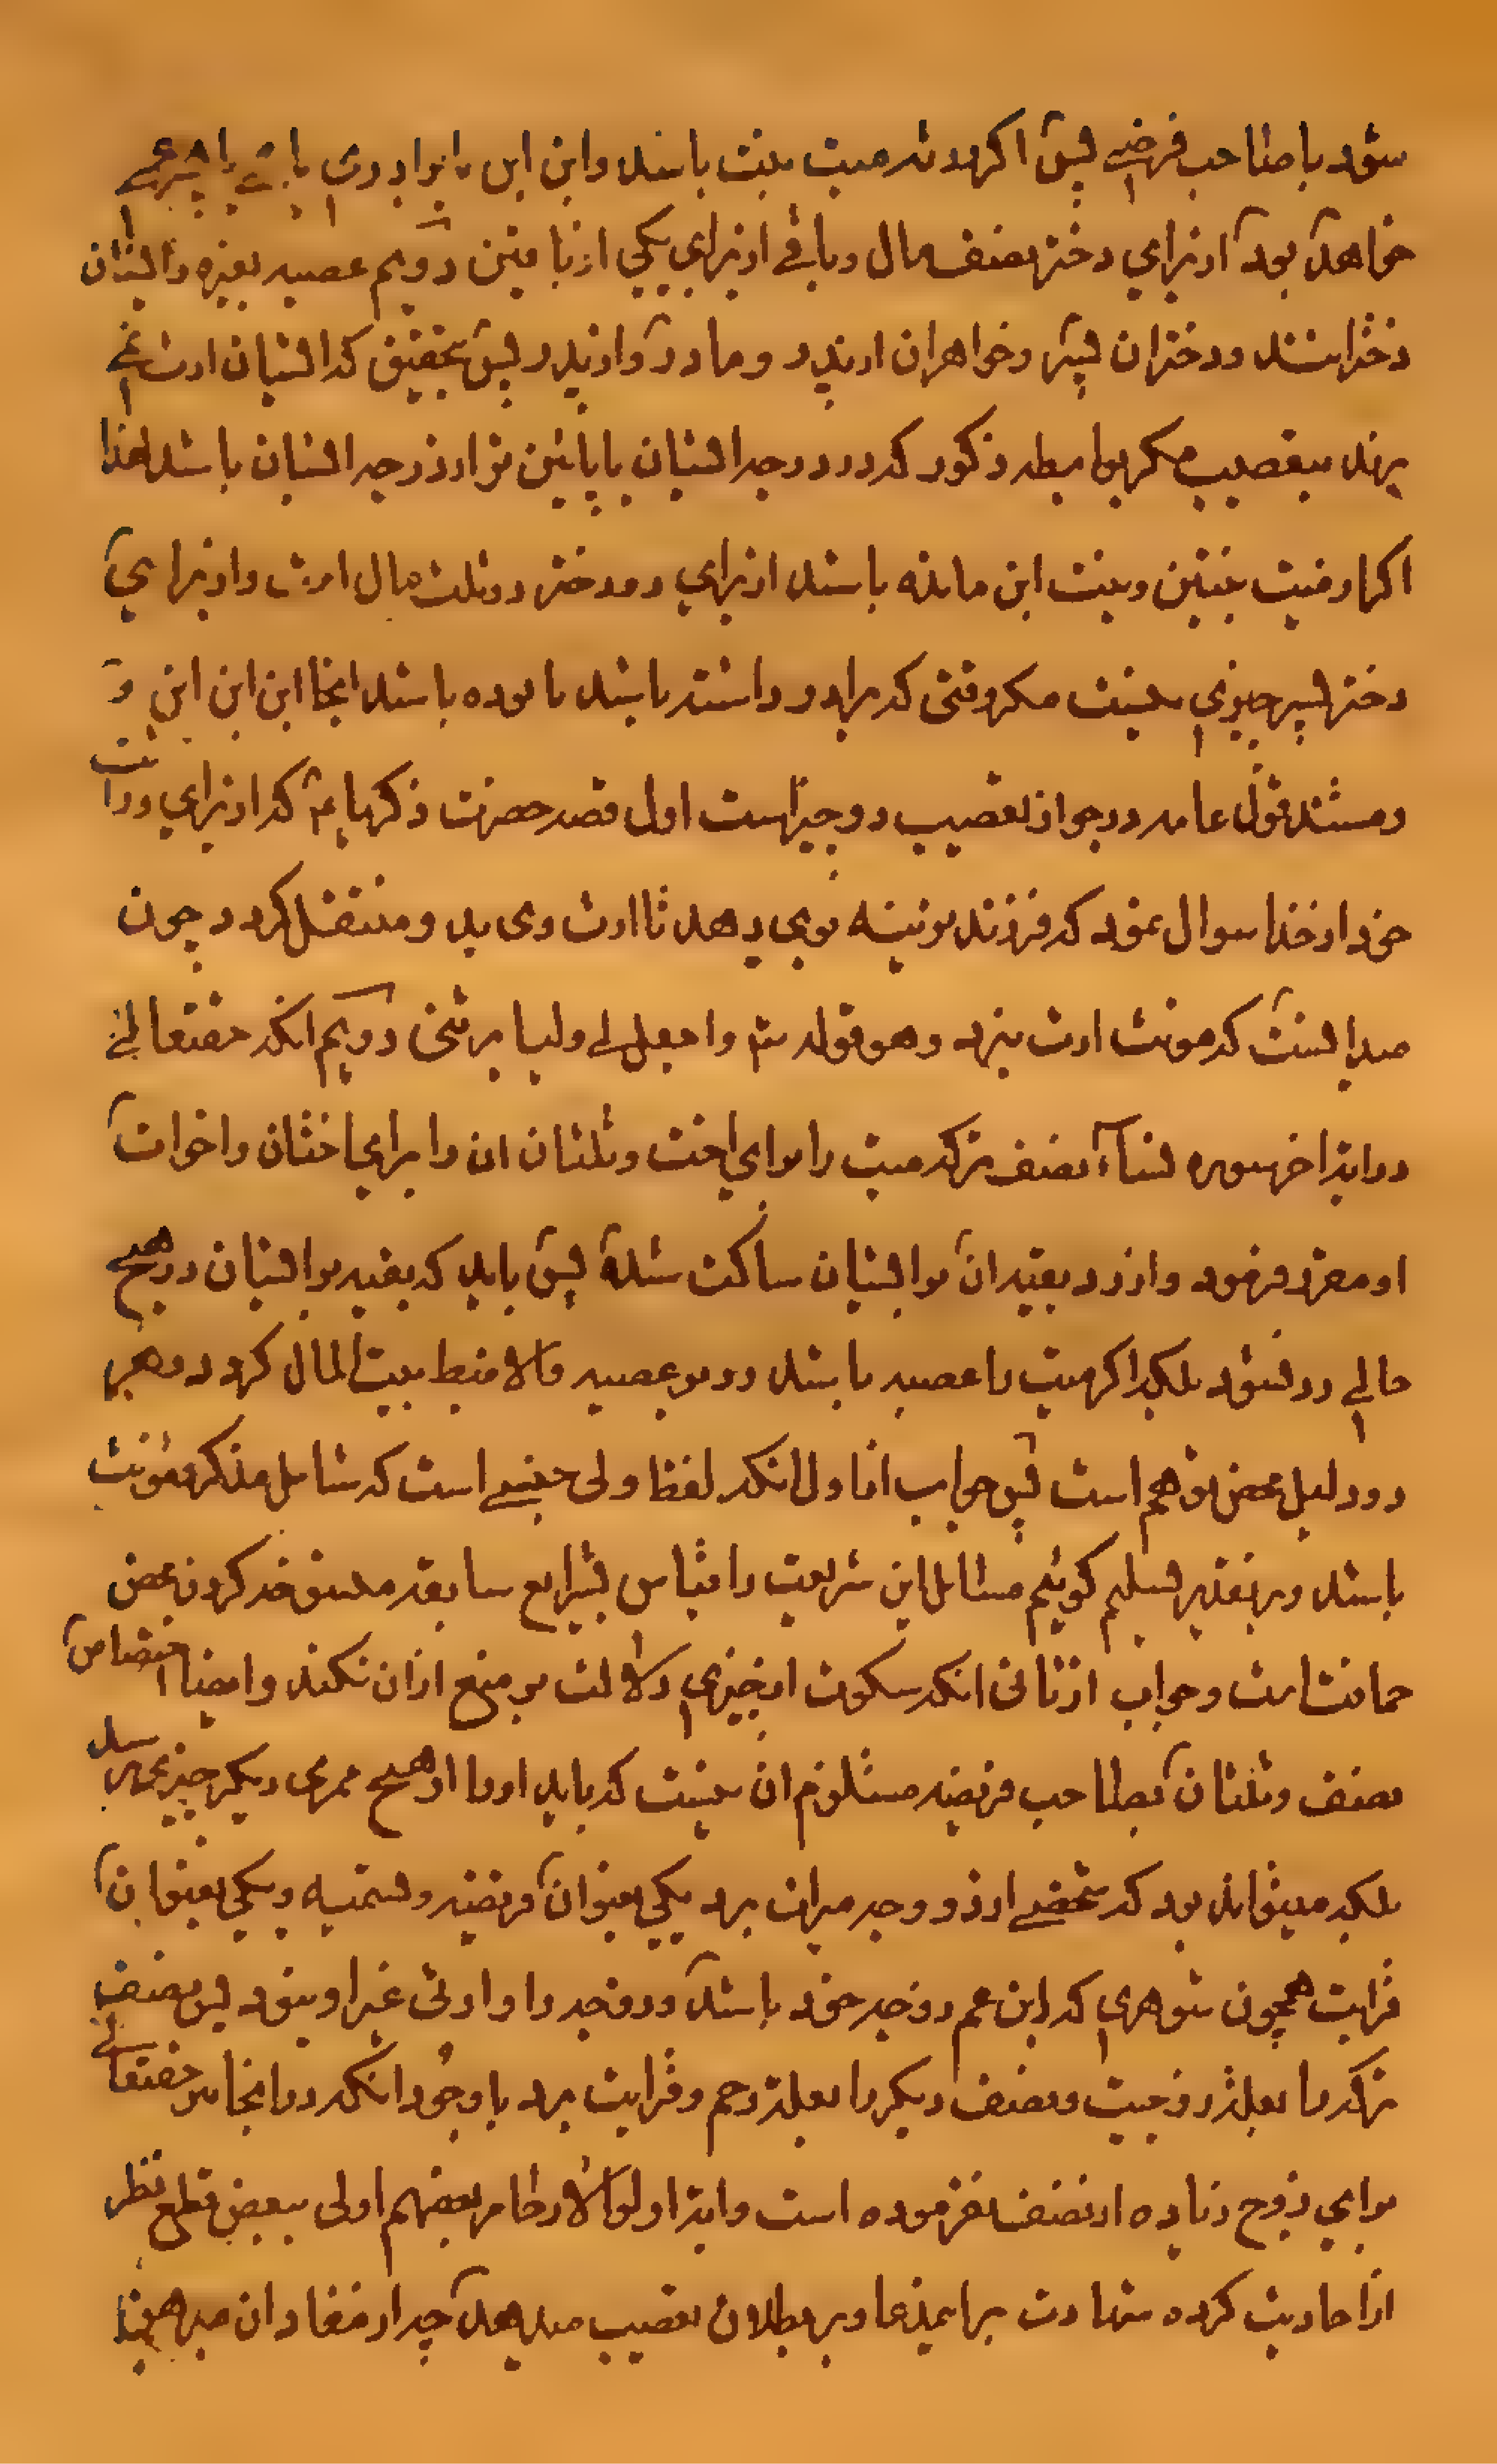 شود با صاحب فرضی پس اگر ورثه میت بنت باشد و ابن ابن یا برادری یا
خواهد بود از برای دختر نصف مال و باقی از برای یکی از باقین دویم عصبه بغیره و ایشان
دخترانند و دختران پسر و خواهران از پدر و مادر و از پدر پس بتحقیق که ایشان ارث نمی
برند بتعصیب مگر بواسطه ذکور که در درجه ایشان یا پائین تر از درجه ایشان باشد لهذا
اگر از میت بنتین و بنت ابن مانده باشد از برای دو دختر دو ثلث مال است و از برای
دختر پسر چیزی نیست مگر وقتی که برادر داشته باشد یا بوده باشد اینجا ابن ابن ابن و
و مستند قول عامه در جواز تعصیب دو چیز است اول قصه حضرت ذکریا ع که از برای وراثت
خود از خدا سوال نمود که فرزند نرینه بوی دهد تا ارث وی بدو منتقل گردد چون
میدانست که مونث ارث نبرد و هو قوله تم واجعل لی ولیا یرثنی دویم انکه حقتعالی
در ایه اخر سوره نساء نصف ترکه میت را برای اخت و ثلثان ان را برای اختان و اخوات
او مقرر فرمود و از رد بقیه ان بر ایشان ساکت شده پس باید که بقیه بر ایشان در هیچ
حالی رد نشود بلکه اگر میت را عصبه باشد رد بر عصبه والا ضبط بیت المال گردد و هر
دو دلیل محض توهم است پس جواب از اول انکه لفظ ولی جنسی است که شامل مذکر و مونث
باشد و بر تقدیر تسلیم گوئیم مسائل این شریعت را قیاس بشرایع سابقه منسوخه کردن محض
حماقت است و جواب از ثانی انکه سکوت از چیزی دلالت بر منع از ان نکند و ایضا اختصاص
نصف و ثلثان بصاحب فریضه مستلزم ان نیست که باید او را از هیچ ممری دیگر چیزی نرسد
بلکه میتواند بود که شخصی از دو وجه میراث برد یکی بعنوان فریضه و تسمیه و یکی بعنوان
قرابت همچون شوهری که ابن عم زوجه خود باشد و زوجه را وارثی غیر او نبود پس نصف
ترکه را بعلة زوجیت و نصف دیگر را بعلة رحم و قرابت برد با وجود انکه در اینجا نیز حقتعالی
برای زوج زیاده از نصف نفرموده است و ایه اولوالارحام بعضهم اولی ببعض قطع نظر
از احادیث کرده شهادت بر این مدعا و بر بطلان تعصیب میدهد چه از مفاد ان مبرهن